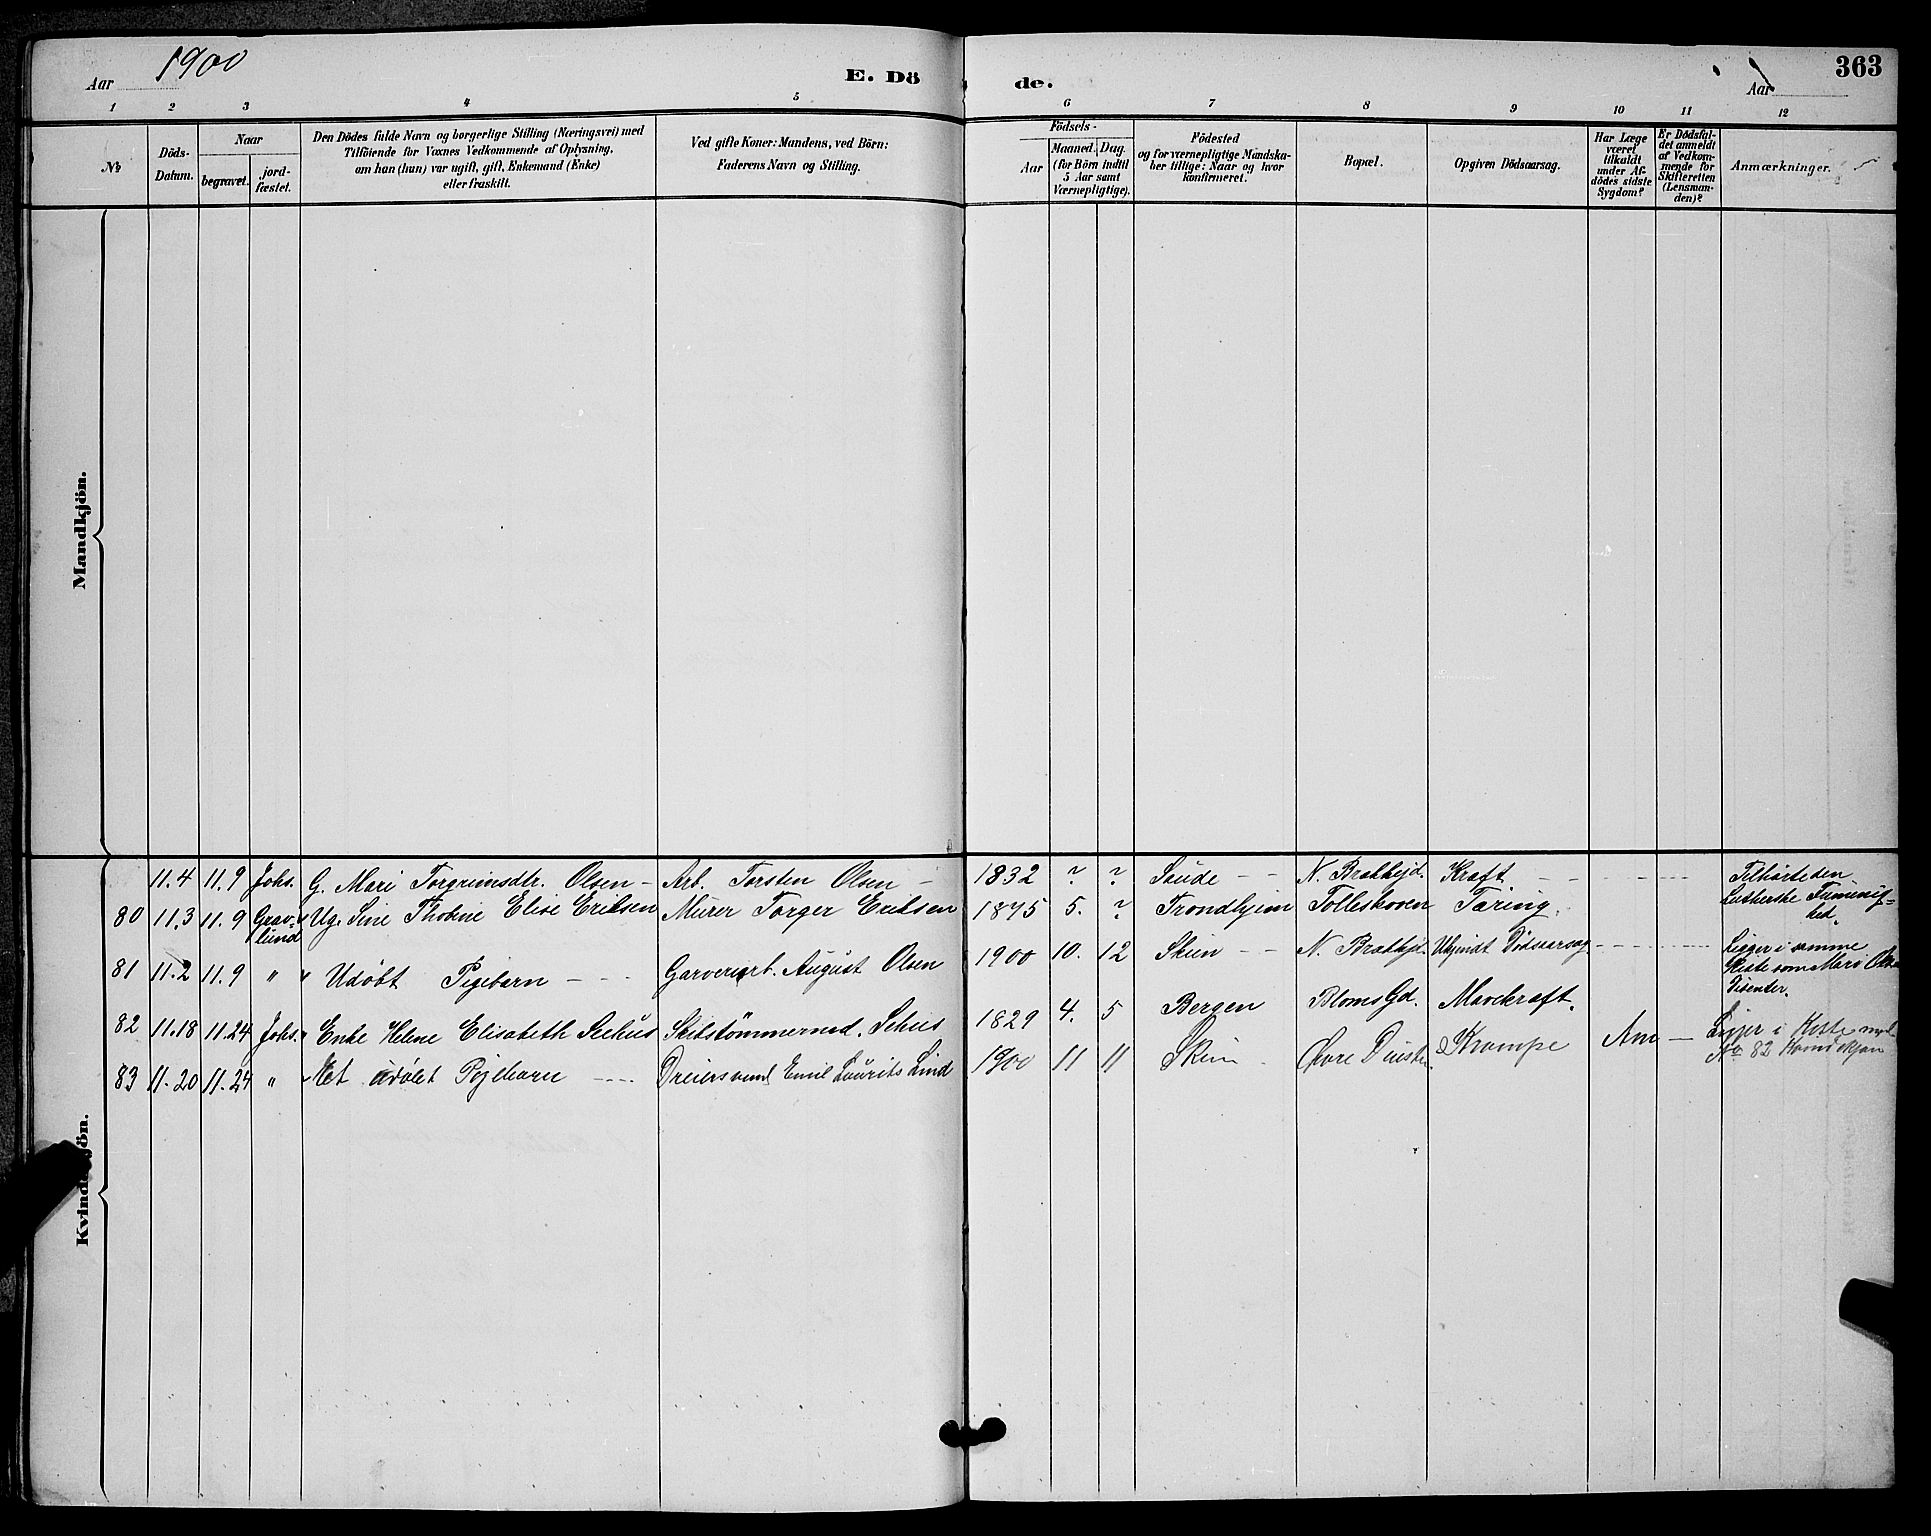 Aar 1900
E. Dö de.
Aar
363
1 2 3 4 5 6 7 8 9 10 11 12
No
Döds-
Datum.
Naar
begravet.
jord-
fæstet.
Den Dödes fulde Navn og borgerlige Stilling (Næringsvei) med
Tilföiende for Voxnes Vedkommende af Oplysning,
om han (hun) var ugift, gift, Enkemand (Enke)
eller fraskilt.
Ved gifte Koner: Mandens, ved Börn:
Faderens Navn og Stilling.
Födsels-
Aar
Maaned. Dag.
(for Börn indtil
5 Aar samt
Værnepligtige).
Födested
og for værnepligtige Mandska-
ber tillige: Naar og hvor
konfirmeret.
Bopæl.
Opgiven Dödsaarsag.
Har Læge
været
tilkaldt
under Af-
dödes sidste
Sygdom?
Er Dödsfal-
det anmeldt
af Vedkom-
mende for
Skifteretten
(Lensman-
den)?
Anmærkninger.
Mandkjön.
11.4 11.9 Johs. G. Mari Torgrimsdtr. Olsen - Arb. Torsten Olsen - 1832 ? ? Saude - - N. Brathejd. Kræft - - Tilhørte den
Lutherske Frimenig=
hed.
80 11.3 11.9 Grav= lund Ug. Sine Thobine Elise Eriksen Murer Torger Eriksen 1875 5. ? Trondhjem Folleskoven Tæring.
81 11.2 11.9 " " Udøbt Pigebarn - - Garveriarb. August Olsen 1900 10. 12 Skien - - N. Brathejd. Ukjendt Dødsaarsag - Ligger i samme
Kiste som Mari Olsen
Disenter.
82 11.18 11.24 Johs. " Enke Helene Elisabeth Seehus Skibstømmermd. Sehus 1829 4. 5 Bergen Bloms Gd. Mavekræft.
83 11.20 11.24 " " Et udøbt Pigebarn - - Dreiersvend Emil Laurits Lind 1900 11 11 Skien - Øvre Krampe - Ligger i Kiste med
No 82 Kvindekjøn
Kvindekjön.